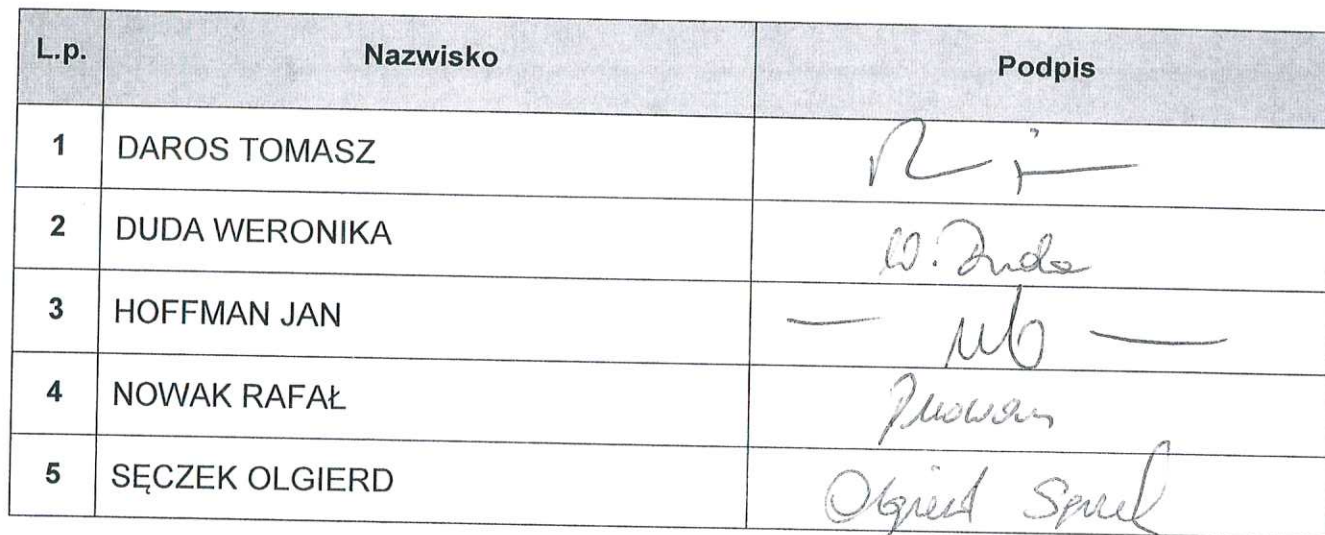 L.p. Nazwisko Podpis
1 DAROS TOMASZ
2 DUDA WERONIKA W. Duda
3 HOFFMAN JAN — nb —
4 NOWAK RAFAŁ
5 SĘCZEK OLGIERD Olgierd